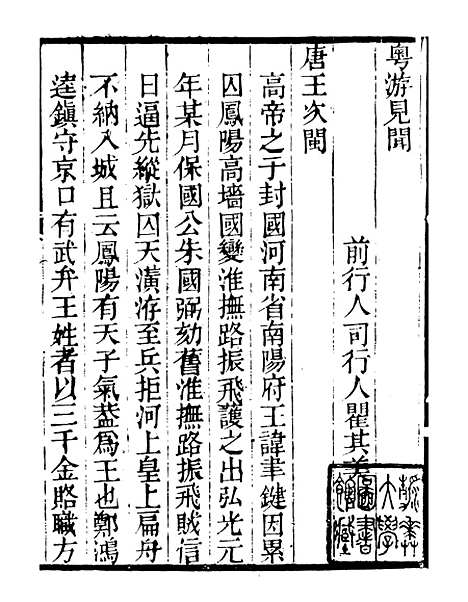 粵游見聞
前行人司行人瞿其美
唐王次閩
高帝之子封國河南省南陽府王諱聿鍵因累
囚鳳陽高墻國變淮撫路振飛護之出弘光元
年某月保國公朱國弼劾舊淮撫路振飛賊信
日逼先縱獄囚天潢洊至兵拒河上皇上扁舟
不納入城且云鳳陽有天子氣葢為王也鄭鴻
逵鎮守京口有武弁王姓者以三千金賂職方
燕京大學圖書館藏